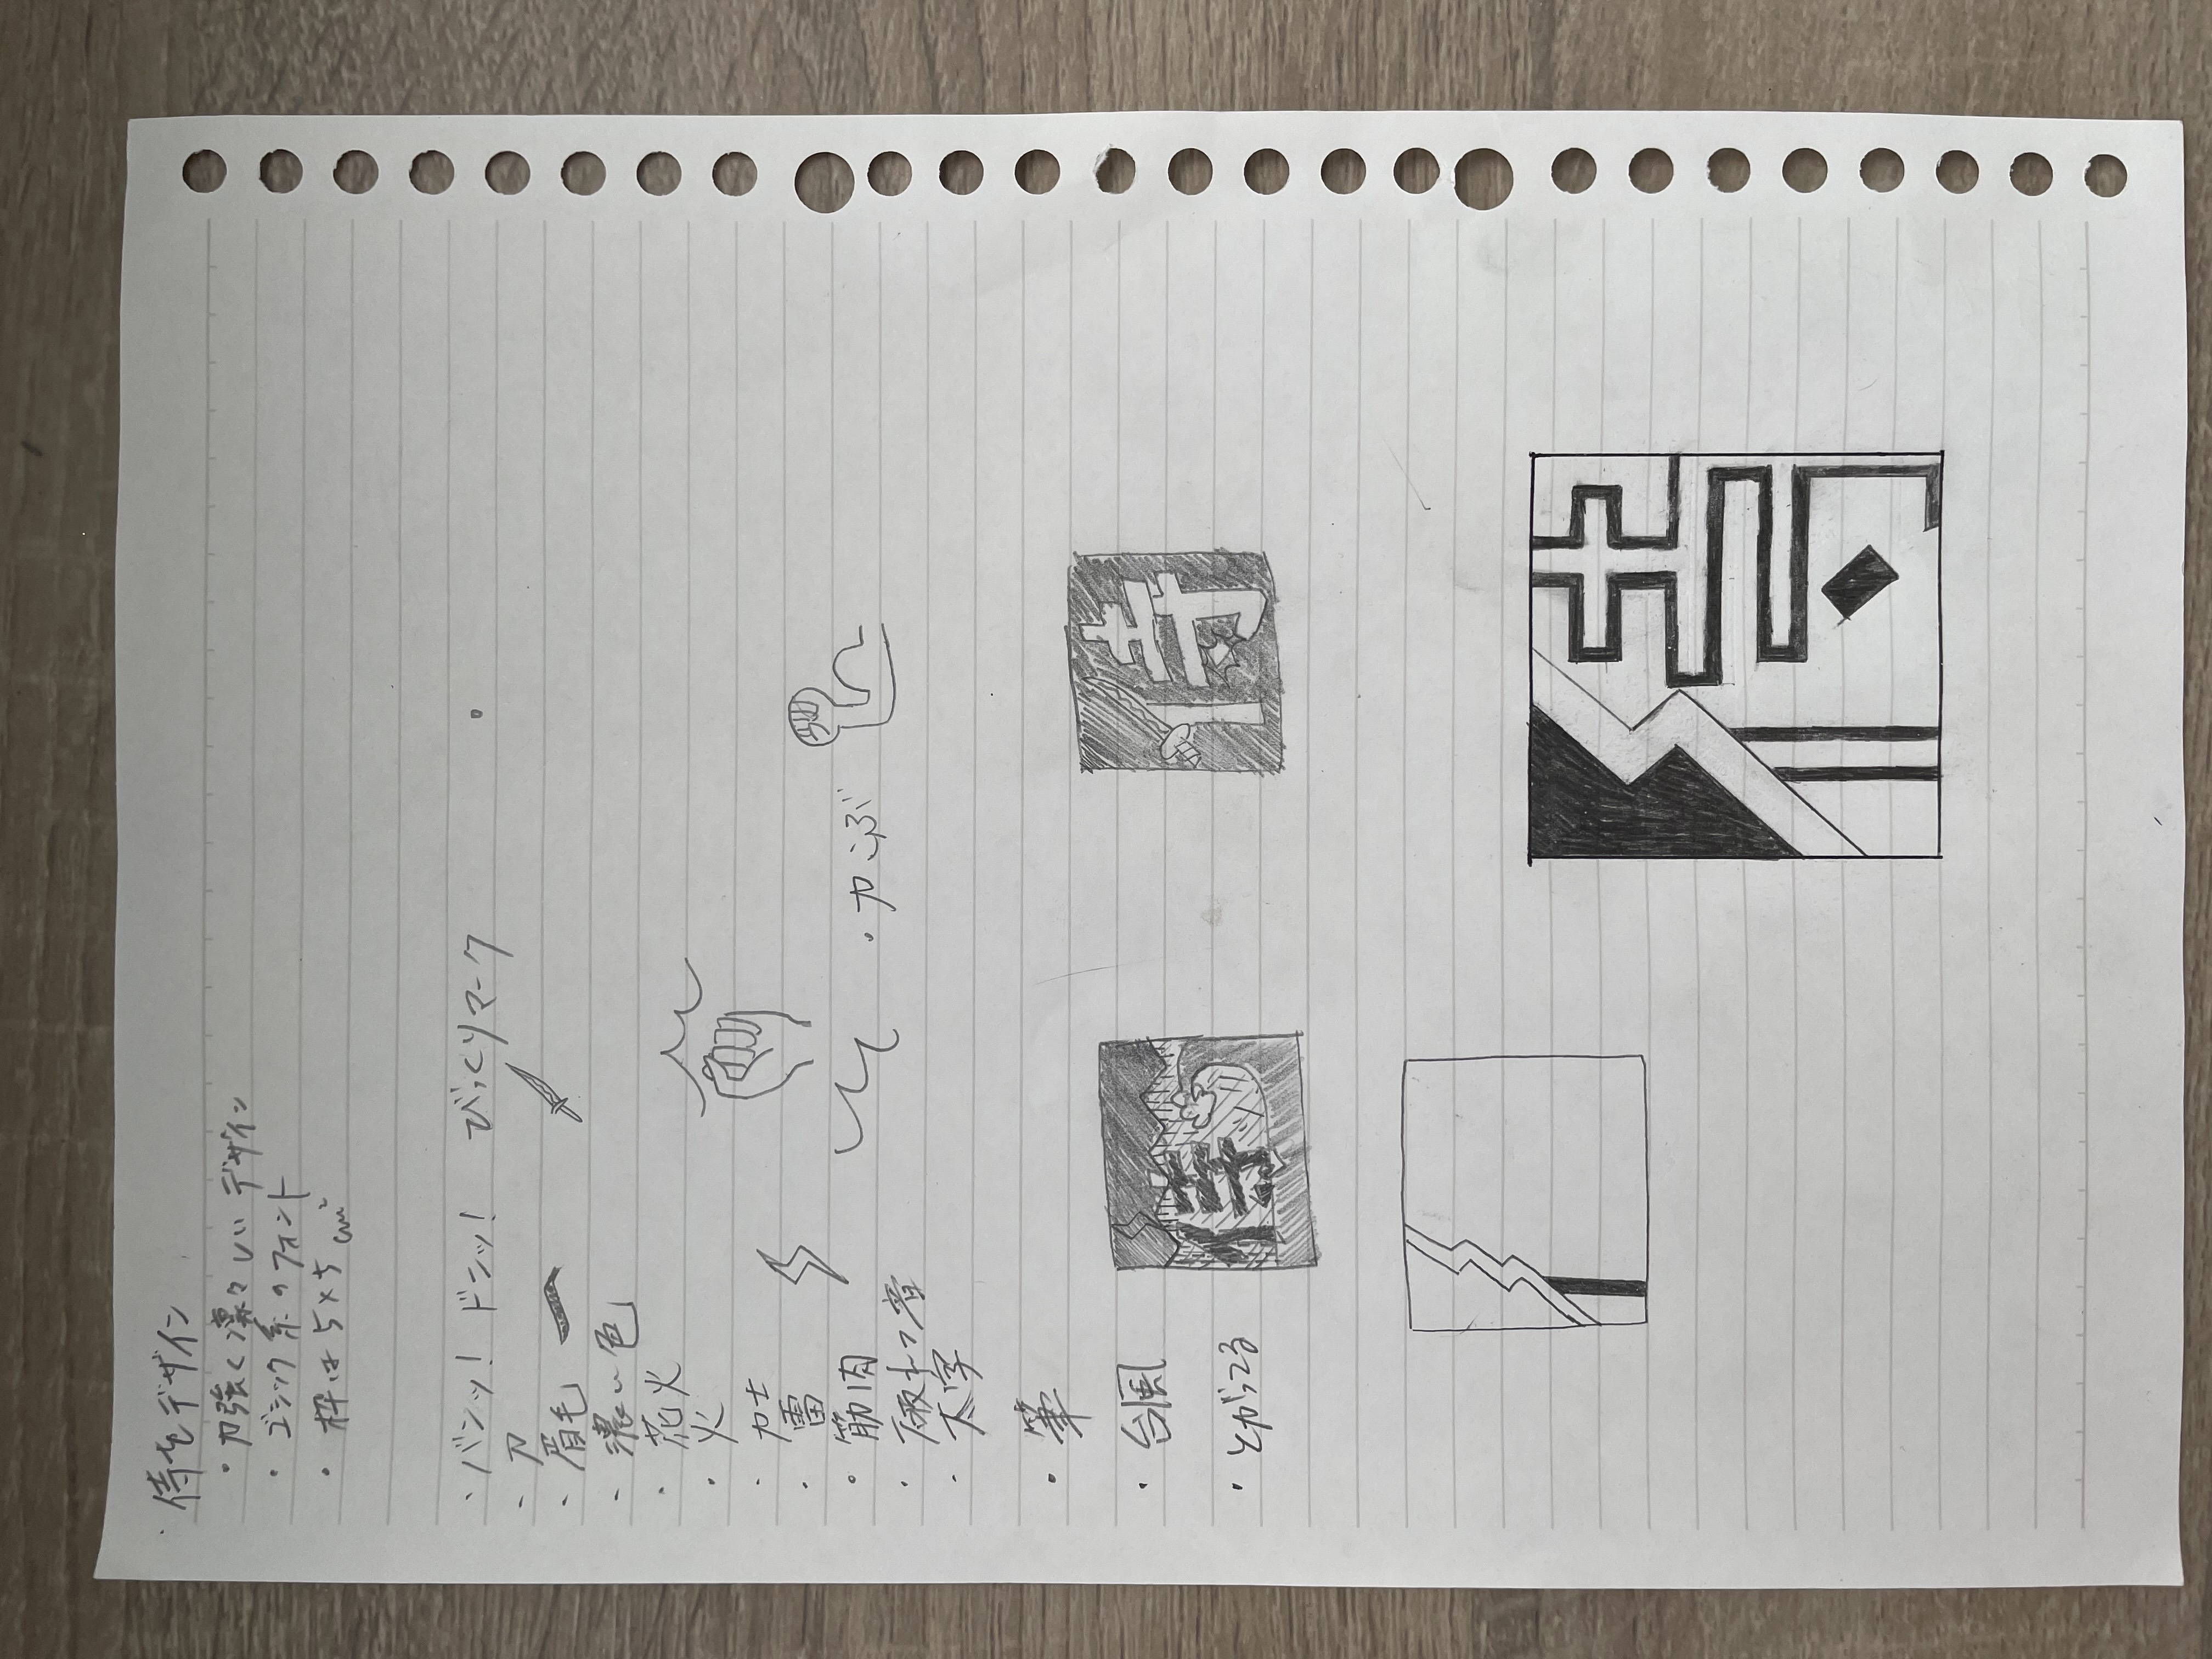 ・侍をデザイン
・力強く凛々しいデザイン
・ゴシック系のフォント
・枠は5×5cm²
・バンッ! ドンッ! びっくりマーク
・刀
・眉毛
・濃い色
・花火
・火
・力士
・雷
・筋肉
・力こぶ
・破れつ音
・太字
・筆
・台風
・とがってる
侍
侍
侍